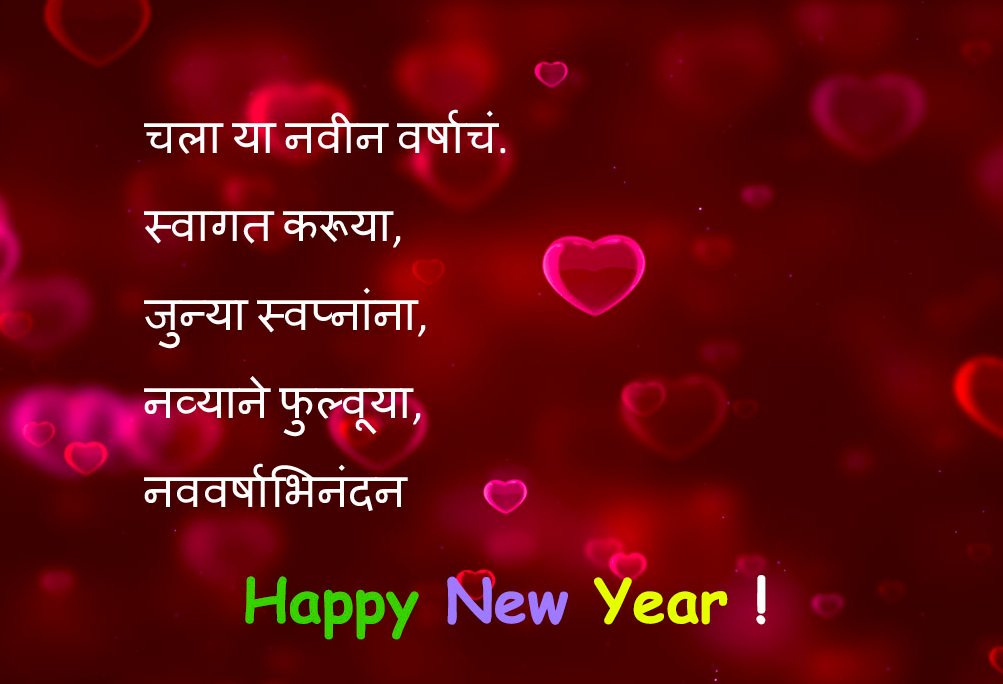 चला या नवीन वर्षाचं.
स्वागत करूया,
जुन्या स्वप्नांना,
नव्याने फुल्वूया,
नववर्षाभिनंदन
Happy New Year !